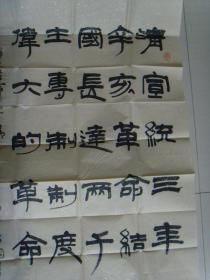 清宣統三年
辛亥革命結
國長達兩千
主專制制度
偉大的革命